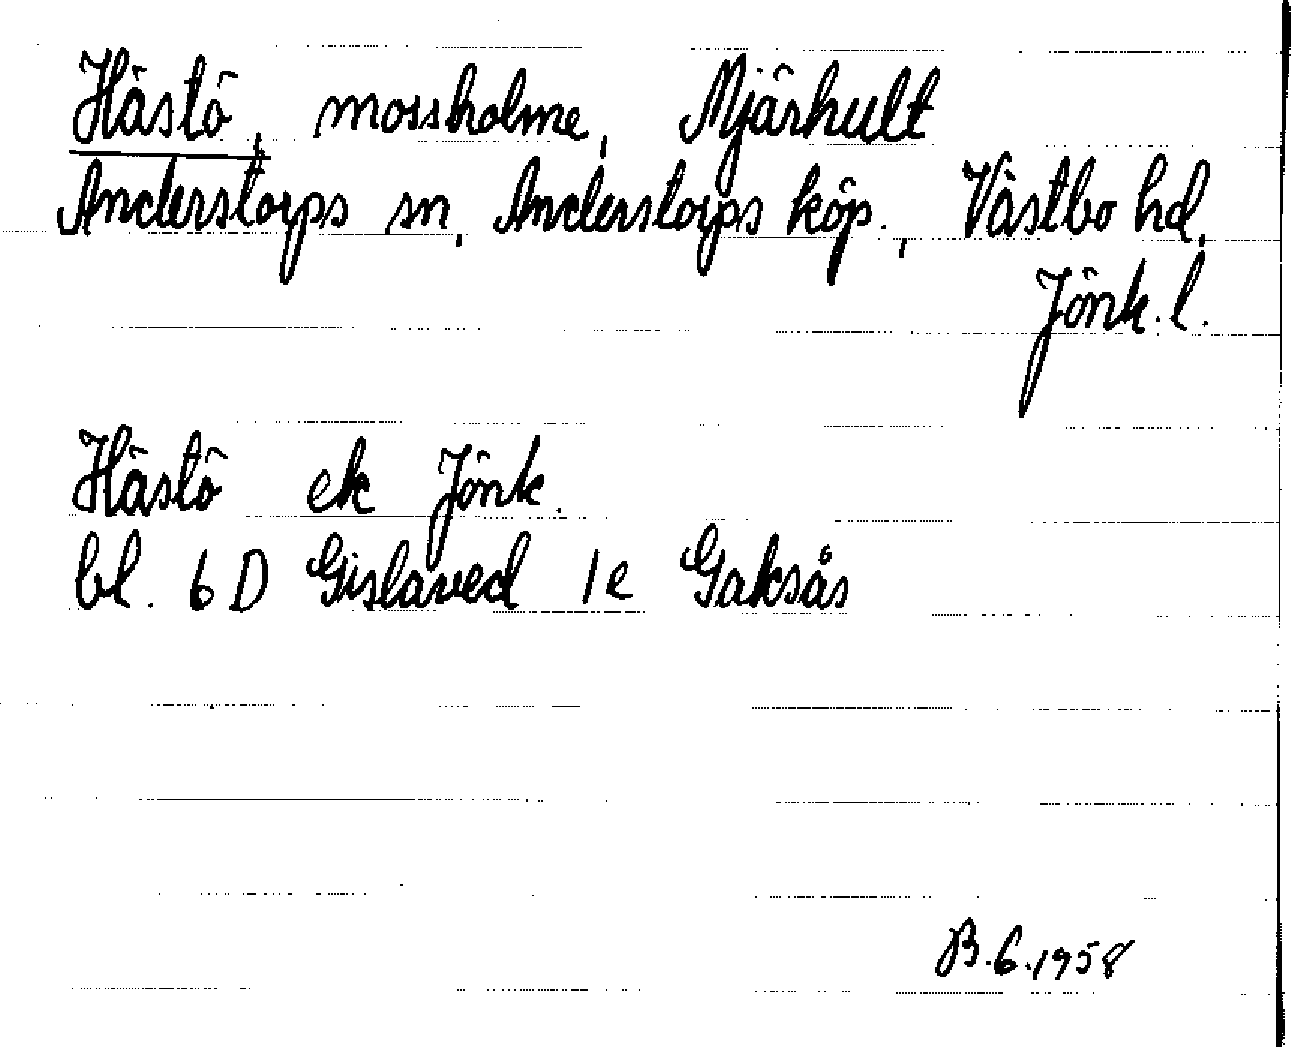 Hästö, mossholme, Mjärhult
Anderstorps sn, Anderstorps köp., Västbo hd,
Jönk. l.
Hästö ek Jönk.
bl. 6 D Gislaved 1e Gaksås
B.6.1958